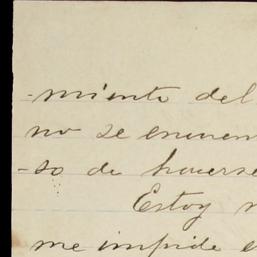 -miento del
no se encuen
-so de haverse
Estoy
me impide e